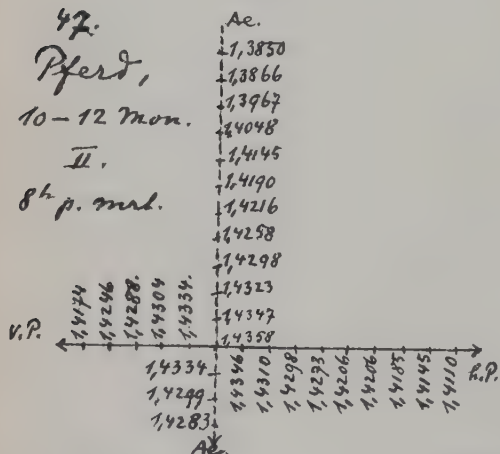 47.
Pferd,
10-12 Mon.
II.
8h p. mrt.
Ae.
1,3850
1,3866
1,3967
1,4048
1,4145
1,4190
1,4216
1,4258
1,4298
1,4323
1,4347
1,4358
v.P.
1,4174
1,4246
1,4288.
1,4304
1,4334.
1,4346
1,4310
1,4298
1,4273
1,4206
1,4206
1,4185
1,4145
1,4110
h.P.
1,4334
1,4299
1,4283
Ae.